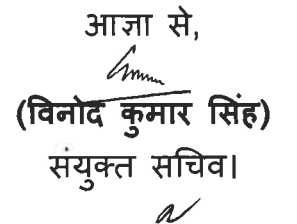 आज्ञा से,
(विनोद कुमार सिंह)
संयुक्त सचिव।